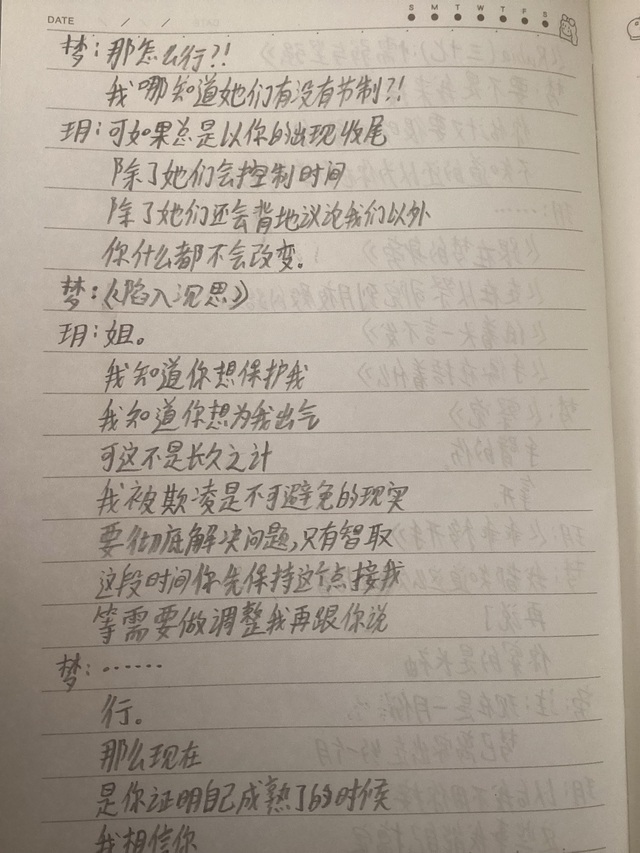 DATE / / /
S M T W T F S
梦：那怎么行?!
我哪知道她们有没有节制?!
玥：可如果总是以你的出现收尾
除了她们会控制时间
除了她们还会背地议论我们以外
你什么都不会改变。
梦：《陷入沉思》
玥：姐。
我知道你想保护我
我知道你想为我出气
可这不是长久之计
我被欺凌是不可避免的现实
要彻底解决问题，只有智取
这段时间你先保持这个点接我
等需要做调整我再跟你说
梦：……
行。
那么现在
是你证明自己成熟了的时候
我相信你